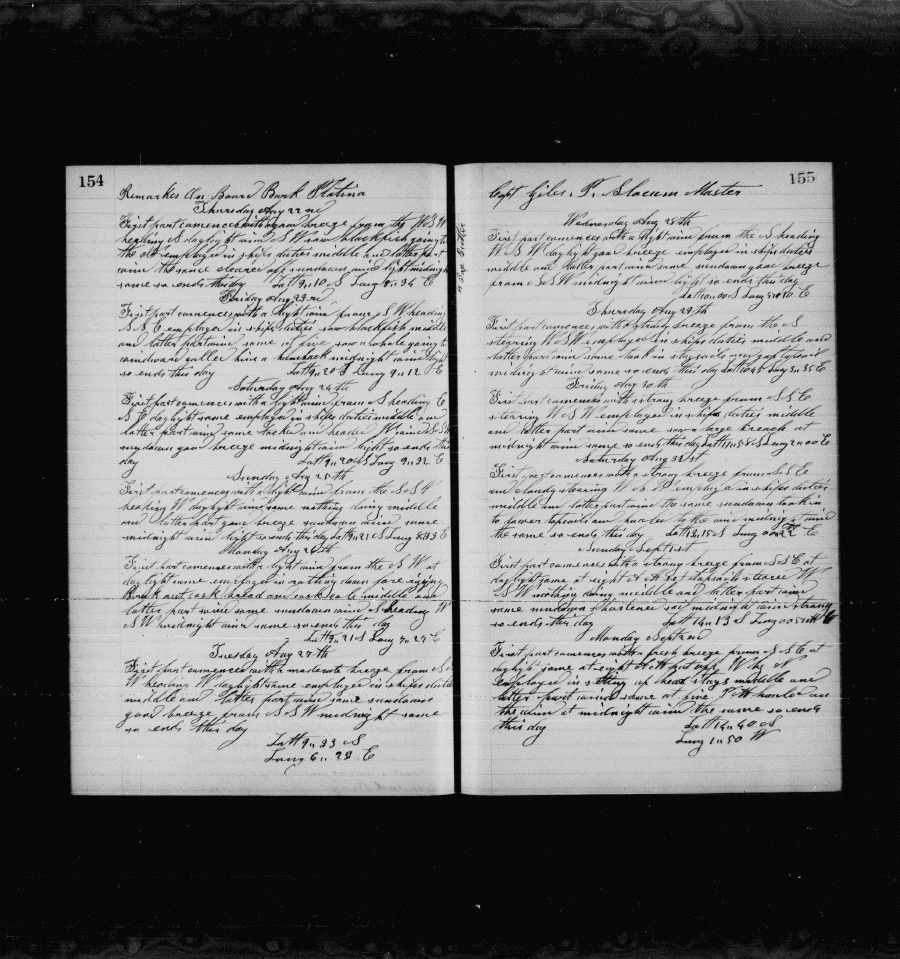 154
Remarkes On Board Bark Platina
Thursday Aug 22 nd
First part comences with a good breeze from the W S W
heading S daylight wind S W saw blackfish going to
the employed in ships duties middle and latter part
wind the same cleared off sundown wind light midnight
same so ends this day Latt 9,,10 S Long 8,,34 E
Friday Aug 23 rd
First part comences with a light wind from S W heading
S S E employed in ships duties saw blackfish middle
and latter part wind same at five saw a whale going to
windward called him a humback midnight wind light
so ends this day Latt 9,,20 S Long 9,,12 E
Saturday Aug 24 th
First part comences with a light wind from S heading E
S E daylight same employed in ships duties middle and
latter part wind same tacked and headed W wind S S W
sundown good breeze midnight wind light so ends this
day Latt 9,,20 S Long 9,,32 E
Sunday Aug 25 th
First part comences with a light wind from the S S W
heading W daylight wind same nothing doing middle
and latter part good breeze sundown wind same
midnight wind light so ends this day Latt 9,,21 S Long 8,,33 E
Monday Aug 26 th
First part comences with a light wind from the S W at
daylight same employed in
cask middle and
latter part wind same sundown wind S heading W
S W midnight wind same so ends this day
Latt 9,,21 S Long 7,,27 E
Tuesday Aug 27 th
First part comences with a moderate breeze from S S
W heading W daylight same employed in ships duties
middle and latter part wind same sundown
good breeze from S S W midnight same
so ends this day
Latt 9,,33 S
Long 6,,23 E
155
Capt Giles P. Slocum Master
Wednesday Aug 28 th
First part comences with a light wind from the S heading
W S W daylight good breeze employed in ships duties
middle and latter part wind same sundown good breeze
from S S W midnight wind light so ends this day
Latt 10,,00 S Long E
Thursday Aug 29 th
First part comences with a steady breeze from the S
stearing W S W employed in ships duties middle and
latter part wind same took in staysails
midnight wind same so ends this day Latt Long 3,,35 E
Friday Aug 30 th
First part comences with a strong breeze from S S E
stearing W S W employed in ships duties middle
and latter part wind same saw a large breach at
midnight wind same so ends this day Latt Long 2,,00 E
Saturday Aug 31 st
First part comences with a strong breeze from S S E
and cloudy stearing W S W employed in ships duties
middle and latter part wind the same sundown took in
to gallantsails and hauled to the wind midnight wind
the same so ends this day Latt 13,,15 S Long 00,,22 E
Sunday Sept 1 st
First part comences with a strong breeze from S S E at
daylight same at eight A M set topsails steared W
S W nothing doing middle and latter part wind
same sundown shortened sail midnight wind strong
so ends this day Latt 14,,13 S Long W
Monday Sept 2 nd
First part comences with a fresh breeze from S S E at
daylight same at eight A M put off W by N
employed in setting up head stays middle and
latter part wind same at five P M hauled on
the wind at midnight wind the same so ends
this day Latt 14,,40 S
Long 1,,50 W